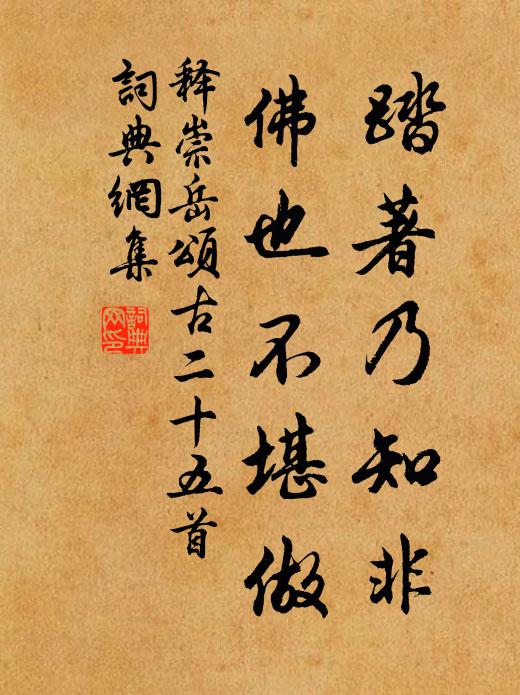 踏著乃知非
佛也不堪做
释崇岳頌古二十五首
詞典網集
詞典网印